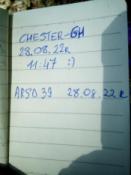 CHESTER-GH
28.08.22r
11:47 :)
ARSD 39 28.08.22r